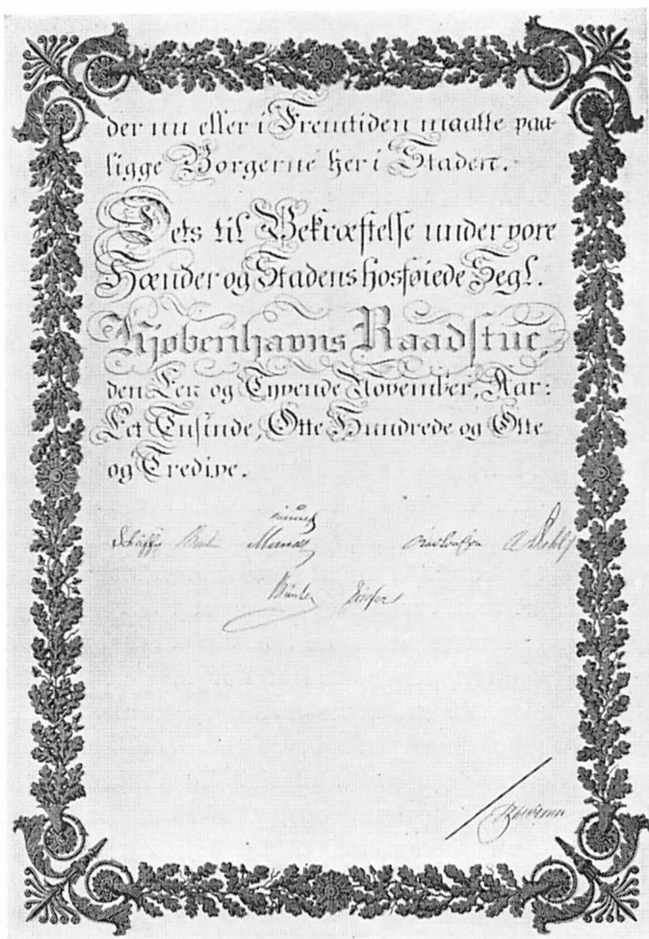 der nu eller i Fremtiden maatte paa-
ligge Borgerne her i Staden.
Dets til Bekræftelse under vore
Hænder og Stadens hosføiede Segl.
Kjøbenhavns Raadstue,
den Een og Tyvende November, Aar:
Eet Tusinde, Otte Hundrede og Otte
og Tredive.